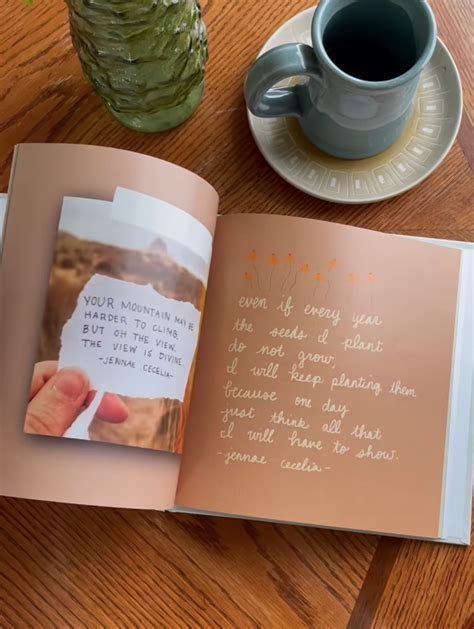 YOUR MOUNTAIN MAY BE
HARDER TO CLIMB,
BUT OH THE VIEW.
THE VIEW IS DIVINE.
-JENNAE CECELIA-
even if every year
the seeds I plant
do not grow,
I will keep planting them
because one day
just think all that
I will have to show.
-jennae cecelia-